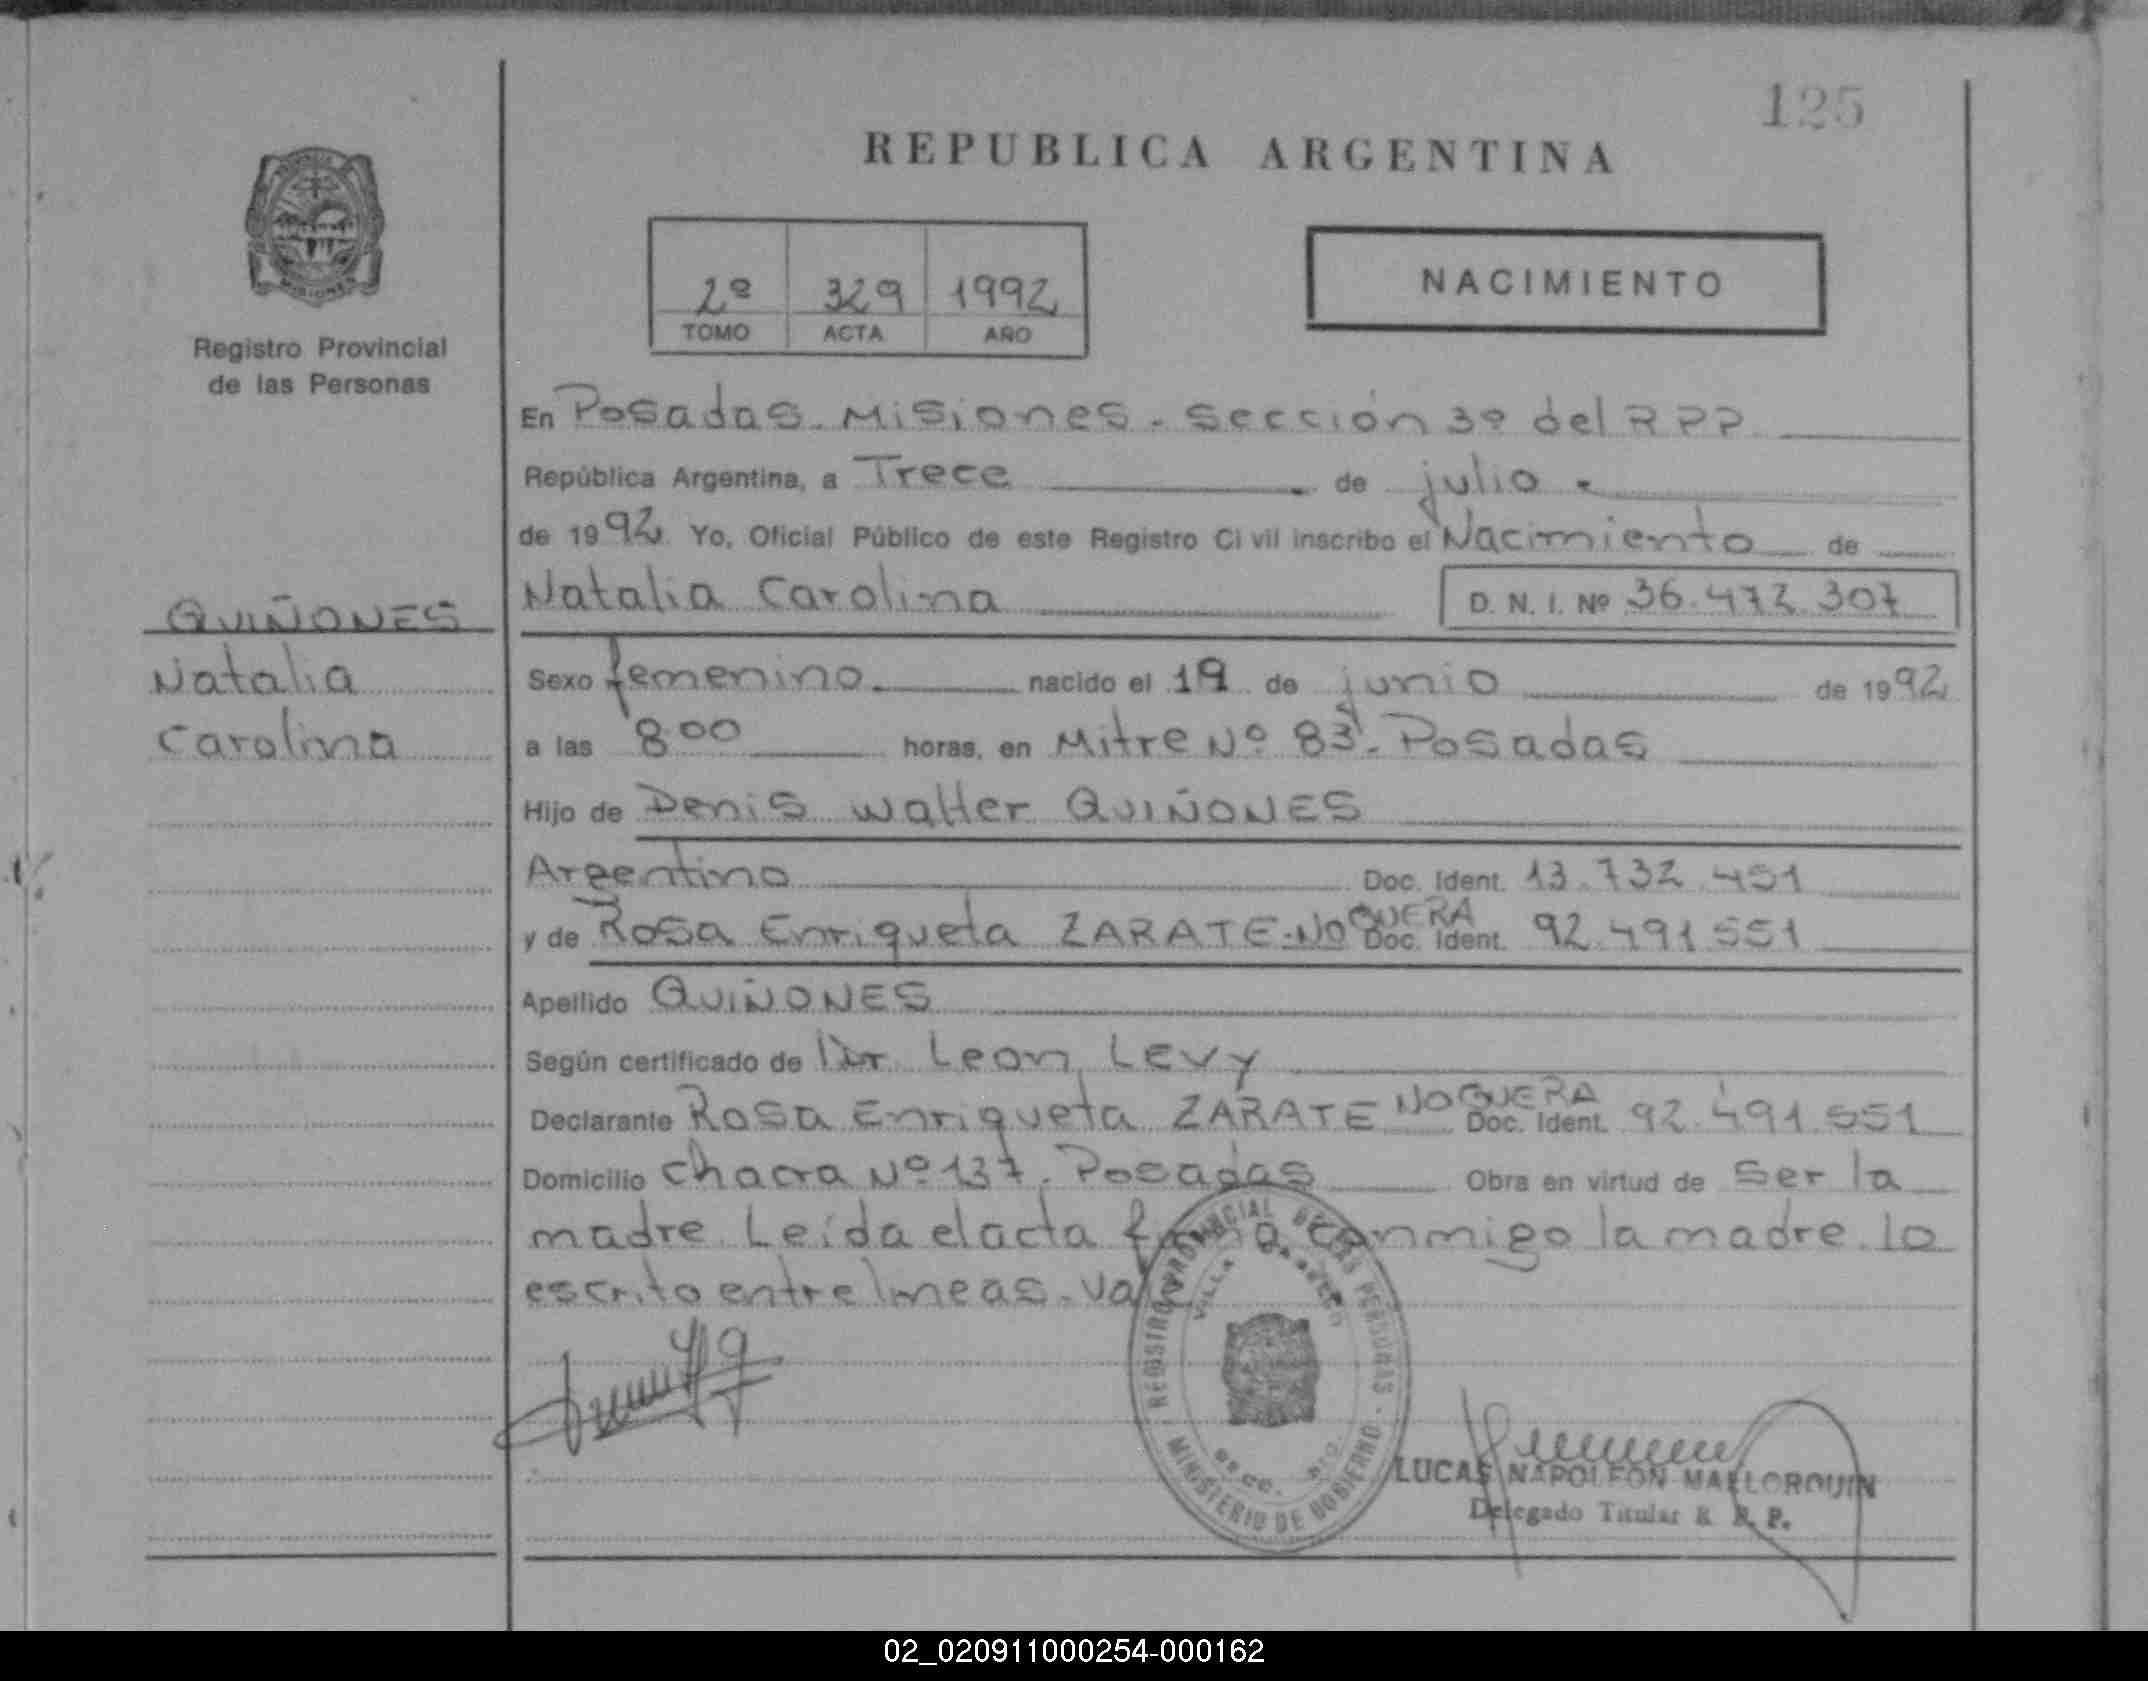 125
REPUBLICA ARGENTINA
2º 329 1992
TOMO ACTA AÑO
NACIMIENTO
MISIONES
Registro Provincial
de las Personas
En Posadas. Misiones. Sección 3º del RPP
República Argentina, a Trece de julio.
de 1992 Yo, Oficial Público de este Registro Civil inscribo el Nacimiento de
Natalia Carolina D. N. I. Nº 36.472.307
QUIÑONES
Natalia
Carolina
Sexo femenino. nacido el 19 de junio de 1992
a las 8 00 horas, en Mitre Nº 83. Posadas
Hijo de Denis Walter QUIÑONES
Argentino Doc. Ident. 13.732.451
y de Rosa Enriqueta ZARATE-NOGUERA Doc. Ident. 92.491.551
Apellido QUIÑONES
Según certificado de Dr. Leon Levy
Declarante Rosa Enriqueta ZARATE NOGUERA Doc. Ident. 92.491.551
Domicilio Chacra Nº 137. Posadas Obra en virtud de ser la
madre. Leída el acta firma conmigo la madre. lo
escrito entrelineas. vale
REGISTRO PROVINCIAL DE LAS PERSONAS
MINISTERIO DE GOBIERNO
VILLA
LUCAS NAPOLEON MALLORQUIN
Delegado Titular R. R. P.
02_020911000254-000162